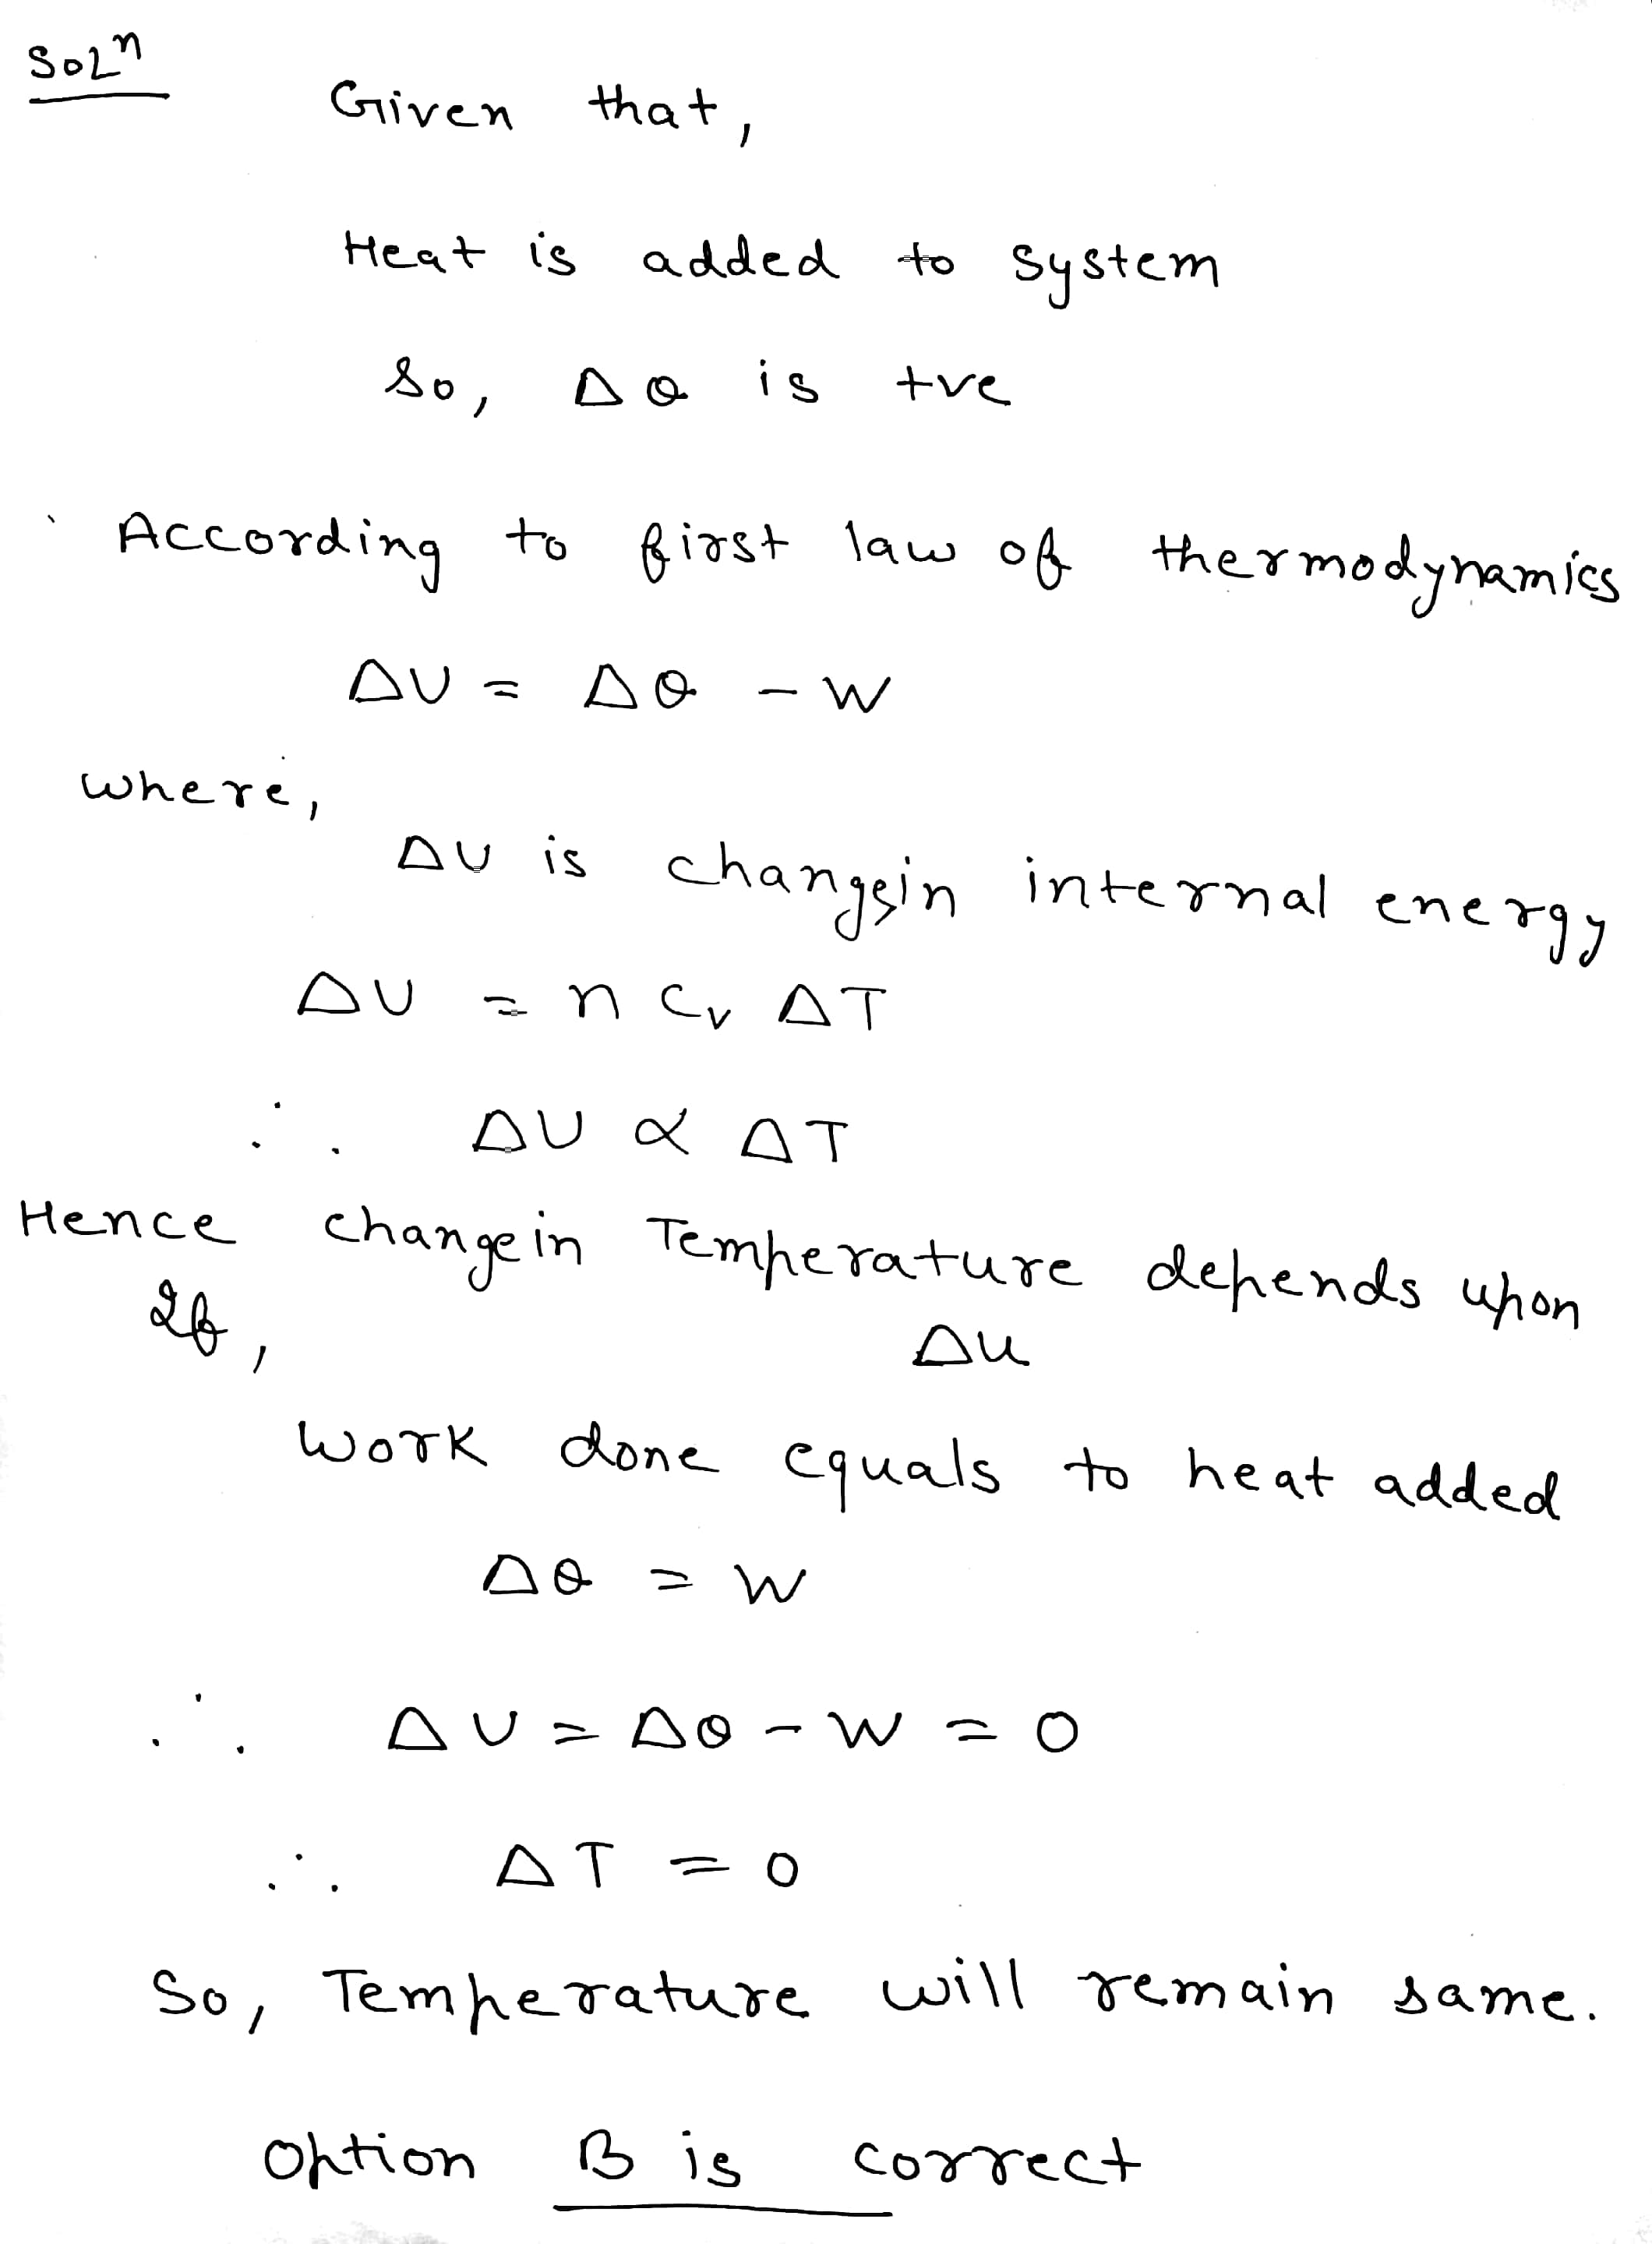 Solⁿ
Given that,
Heat is added to system
So, ΔQ is +ve
According to first law of thermodynamics
ΔU = ΔQ - W
where,
ΔU is changein internal energy
ΔU = n Cv ΔT
∴ ΔU ∝ ΔT
Hence changein Temperature depends upon
ΔU
If,
Work done equals to heat added
ΔQ = W
∴ ΔU = ΔQ - W = 0
∴ ΔT = 0
So, Temperature will remain same.
Option B is correct